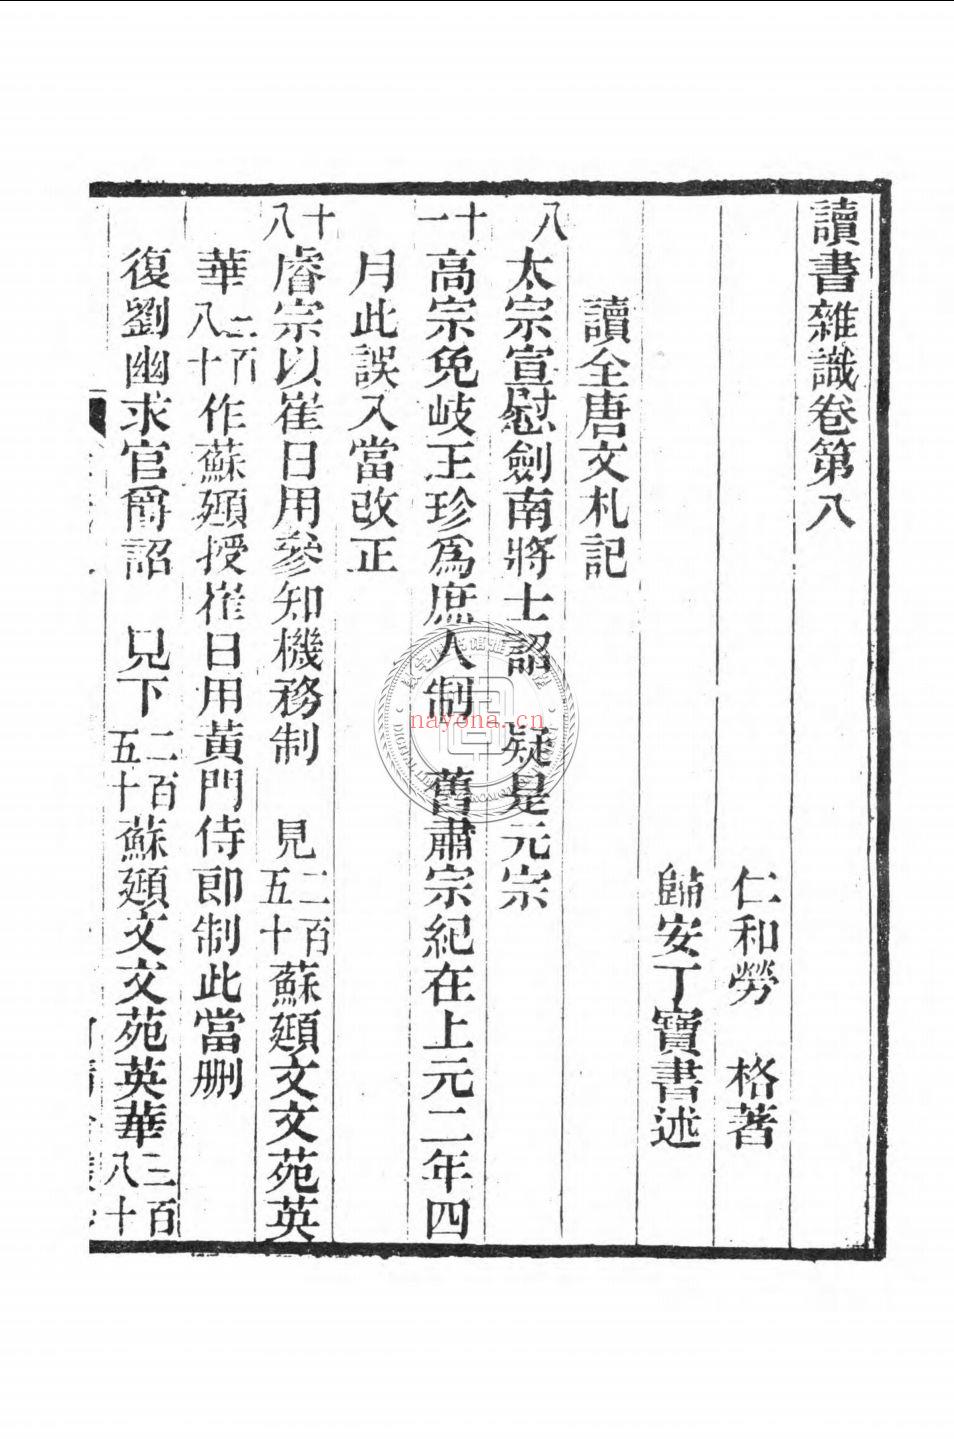 讀書雜識卷第八
仁和勞　格著
歸安丁寶書述
讀全唐文札記
八　太宗宣慰劍南將士詔　疑是元宗
十一　高宗免岐王珍爲庶人制　舊肅宗紀在上元二年四
月此誤入當改正
十八　睿宗以崔日用參知機務制　見二百五十蘇頲文文苑英
華三百八十作蘇頲授崔日用黃門侍郎制此當刪
復劉幽求官爵詔　見下二百五十蘇頲文文苑英華三百八十
nayona.cn